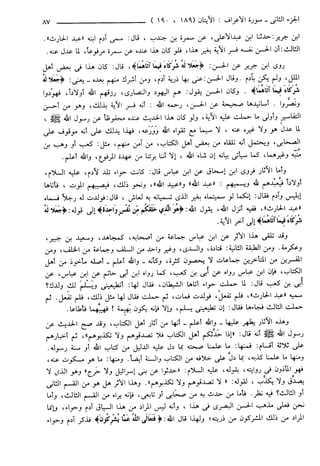 الجزء الثاني - سورة الأعراف: الآيتان (١٨٩ ، ١٩٠) ٨٧
ابن جرير: حدثنا ابن عبدالأعلى، عن سمرة بن جندب، قال: سمى آدم ابنه «عبد الحارث».
الثالث: أن الحسن نفسه فسر الآية بغير هذا، فلو كان هذا عنده عن سمرة مرفوعاً، لما عدل عنه.
روى ابن جرير عن الحسن: ﴿جَعَلَا لَهُ شُرَكَاءَ فِيمَا آتَاهُمَا﴾، قال: كان هذا في بعض أهل
الملل، ولم يكن بآدم. وقال الحسن: عنى بها ذرية آدم، ومن أشرك منهم بعده - يعني: ﴿جَعَلَا لَهُ
شُرَكَاءَ فِيمَا آتَاهُمَا﴾. وكان الحسن يقول: هم اليهود والنصارى، رزقهم الله أولاداً، فهودوا
ونصروا. أسانيدها صحيحة عن الحسن، رحمه الله: أنه فسر الآية بذلك، وهو من أحسن
التفاسير وأولى ما حملت عليه الآية، ولو كان هذا الحديث عنده محفوظاً عن رسول الله ﷺ،
لما عدل هو ولا غيره عنه، لا سيما مع تقواه الله وورعه، فهذا يدلك على أنه موقوف على
الصحابي، ويحتمل أنه تلقاه من بعض أهل الكتاب، من آمن منهم، مثل: كعب أو وهب بن
منبه وغيرهما، كما سيأتي بيانه إن شاء الله، إلا أننا برئنا من عهدة المرفوع، والله أعلم.
وأما الآثار فروى ابن إسحاق عن ابن عباس قال: كانت حواء تلد لآدم، عليه السلام،
أولاداً فيعبدهم لله ويسميهم: «عبد الله» و«عبيد الله»، ونحو ذلك، فيصيبهم الموت، فأتاها
إبليس وآدم فقال: إنكما لو سميتماه بغير الذي تسميانه به لعاش، قال: فولدت له رجلاً فسماه
«عبد الحارث»، ففيه أنزل الله، يقول الله: ﴿هُوَ الَّذِي خَلَقَكُمْ مِنْ نَفْسٍ وَاحِدَةٍ﴾ إلى قوله: ﴿جَعَلَا لَهُ
شُرَكَاءَ فِيمَا آتَاهُمَا﴾ إلى آخر الآية.
وقد تلقى هذا الأثر عن ابن عباس جماعة من أصحابه، كمجاهد، وسعيد بن جبير،
وعكرمة. ومن الطبقة الثانية: قتادة، والسدي، وغير واحد من السلف وجماعة من الخلف، ومن
المفسرين من المتأخرين جماعات لا يحصون كثرة، وكأنه - والله أعلم - أصله مأخوذ من أهل
الكتاب، فإن ابن عباس رواه عن أُبي بن كعب، كما رواه ابن أبي حاتم عن ابن عباس، عن
أُبي بن كعب قال: لما حملت حواء أتاها الشيطان، فقال لها: أتطيعيني ويسلم لك ولدك؟
سميه «عبد الحارث»، فلم تفعل، فولدت فمات، ثم حملت فقال لها مثل ذلك، فلم تفعل. ثم
حملت الثالث فجاءها فقال: إن تطيعيني يسلم، وإلا فإنه يكون بهيمة! فهيبهما فأطاعا.
وهذه الآثار يظهر عليها - والله أعلم - أنها من آثار أهل الكتاب، وقد صح الحديث عن
رسول الله ﷺ أنه قال: «إذا حدثكم أهل الكتاب فلا تصدقوهم ولا تكذبوهم»، ثم أخبارهم
على ثلاثة أقسام، فمنها: ما علمنا صحته بما دل عليه الدليل من كتاب الله أو سنة رسوله.
ومنها ما علمنا كذبه، بما دل على خلافه من الكتاب والسنة أيضاً. ومنها: ما هو مسكوت عنه،
فهو المأذون في روايته، بقوله، عليه السلام: «حدثوا عن بني إسرائيل ولا حرج» وهو الذي لا
يصدق ولا يكذب، لقوله: «لا تصدقوهم ولا تكذبوهم». وهذا الأثر هل هو من القسم الثاني
أو الثالث؟ فيه نظر. فأما من حدث به من صحابي أو تابعي، فإنه يراه من القسم الثالث، وأما
نحن فعلى مذهب الحسن البصري في هذا، وأنه ليس المراد من هذا السياق آدم وحواء، وإنما
المراد من ذلك المشركون من ذريته؛ ولهذا قال الله: ﴿فَتَعَالَى اللَّهُ عَمَّا يُشْرِكُونَ﴾ فذكر آدم وحواء